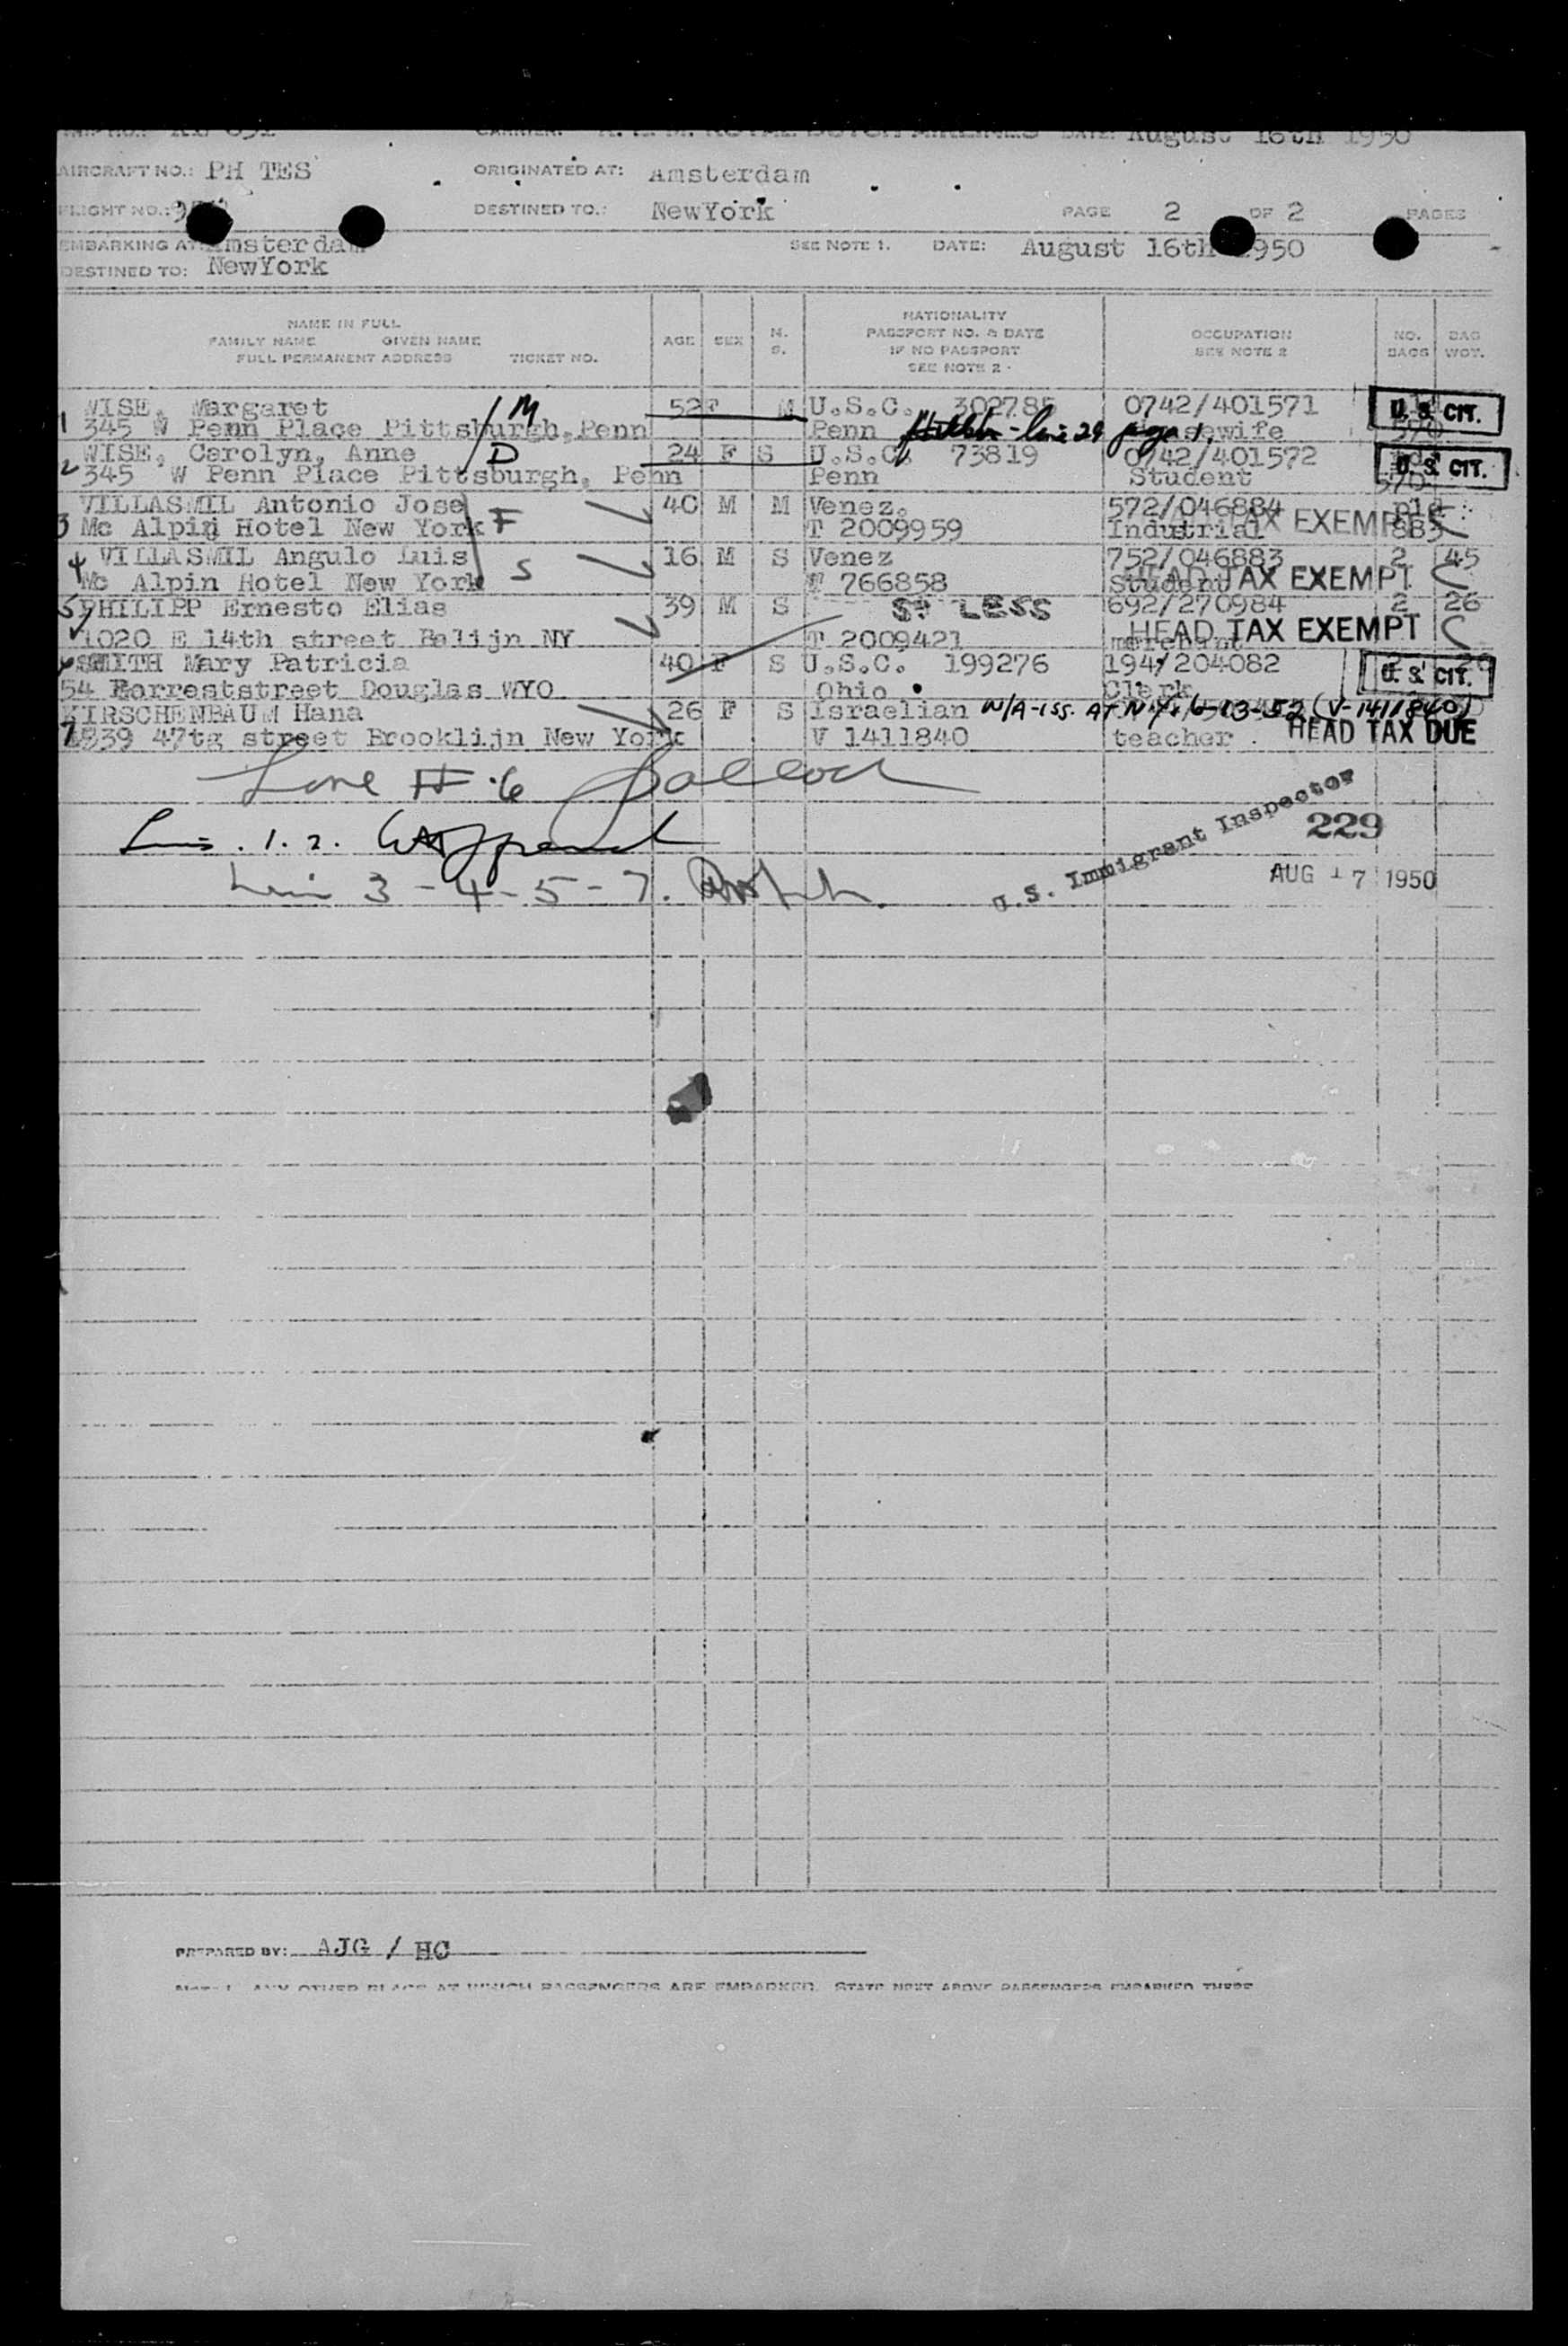 August 16th 1950
AIRCRAFT NO.: PH TES ORIGINATED AT: Amsterdam
FLIGHT NO.: DESTINED TO.: NewYork PAGE 2 OF 2 PAGES
EMBARKING AT: Amsterdam SEE NOTE 1. DATE: August 16th 1950
DESTINED TO: NewYork
NAME IN FULL
FAMILY NAME GIVEN NAME
FULL PERMANENT ADDRESS TICKET NO.
AGE SEX M. S.
NATIONALITY
PASSPORT NO. & DATE
IF NO PASSPORT
SEE NOTE 2
OCCUPATION
SEE NOTE 2
NO. BAGS
BAG WGT.
1 WISE, Margaret M 52 F M U.S.C. 302785 0742/401571 U. S. CIT.
345 W Penn Place Pittsburgh, Penn Penn line 29 page 1. Housewife
2 WISE, Carolyn, Anne D 24 F S U.S.C. 73819 0742/401572 U. S. CIT.
345 W Penn Place Pittsburgh, Penn Penn Student
3 VILLASMIL Antonio Jose F 40 M M Venez. 572/046884
Mc Alpin Hotel New York T 2009959 Industrial TAX EXEMPT
4 VILLASMIL Angulo Luis S 16 M S Venez 752/046883 2 45
Mc Alpin Hotel New York T 766858 Student HEAD TAX EXEMPT
5 PHILIPP Ernesto Elias 39 M S St LESS 692/270984 2 26
1020 E 14th street Balijn NY T 2009421 merchant HEAD TAX EXEMPT
SMITH Mary Patricia 40 F S U.S.C. 199276 194/204082 U. S. CIT.
54 Forreststreet Douglas WYO Ohio Clerk
KIRSCHENBAUM Hana 26 F S Israelian N/A-iss. AT N.Y. 6-13-52 (V-1411840)
7 1539 47tg street Brooklijn New York V 1411840 teacher HEAD TAX DUE
Line # 6
Lines 1. 2.
Line 3 - 4 - 5 - 7.
U.S. Immigrant Inspector
229
AUG 17 1950
PREPARED BY: AJG / HC
NOTE 1. ANY OTHER PLACE AT WHICH PASSENGERS ARE EMBARKED. STATE NEXT ABOVE PASSENGERS EMBARKED THERE